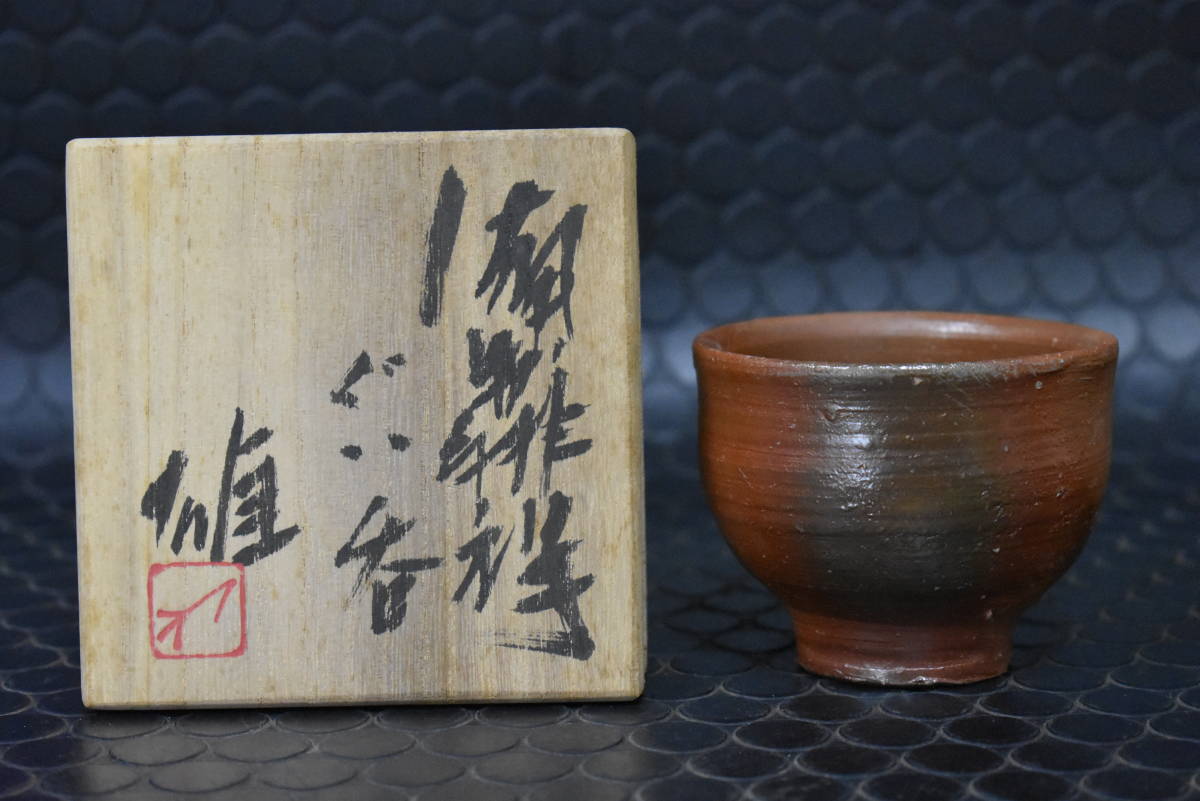 備前緋襷
ぐい呑